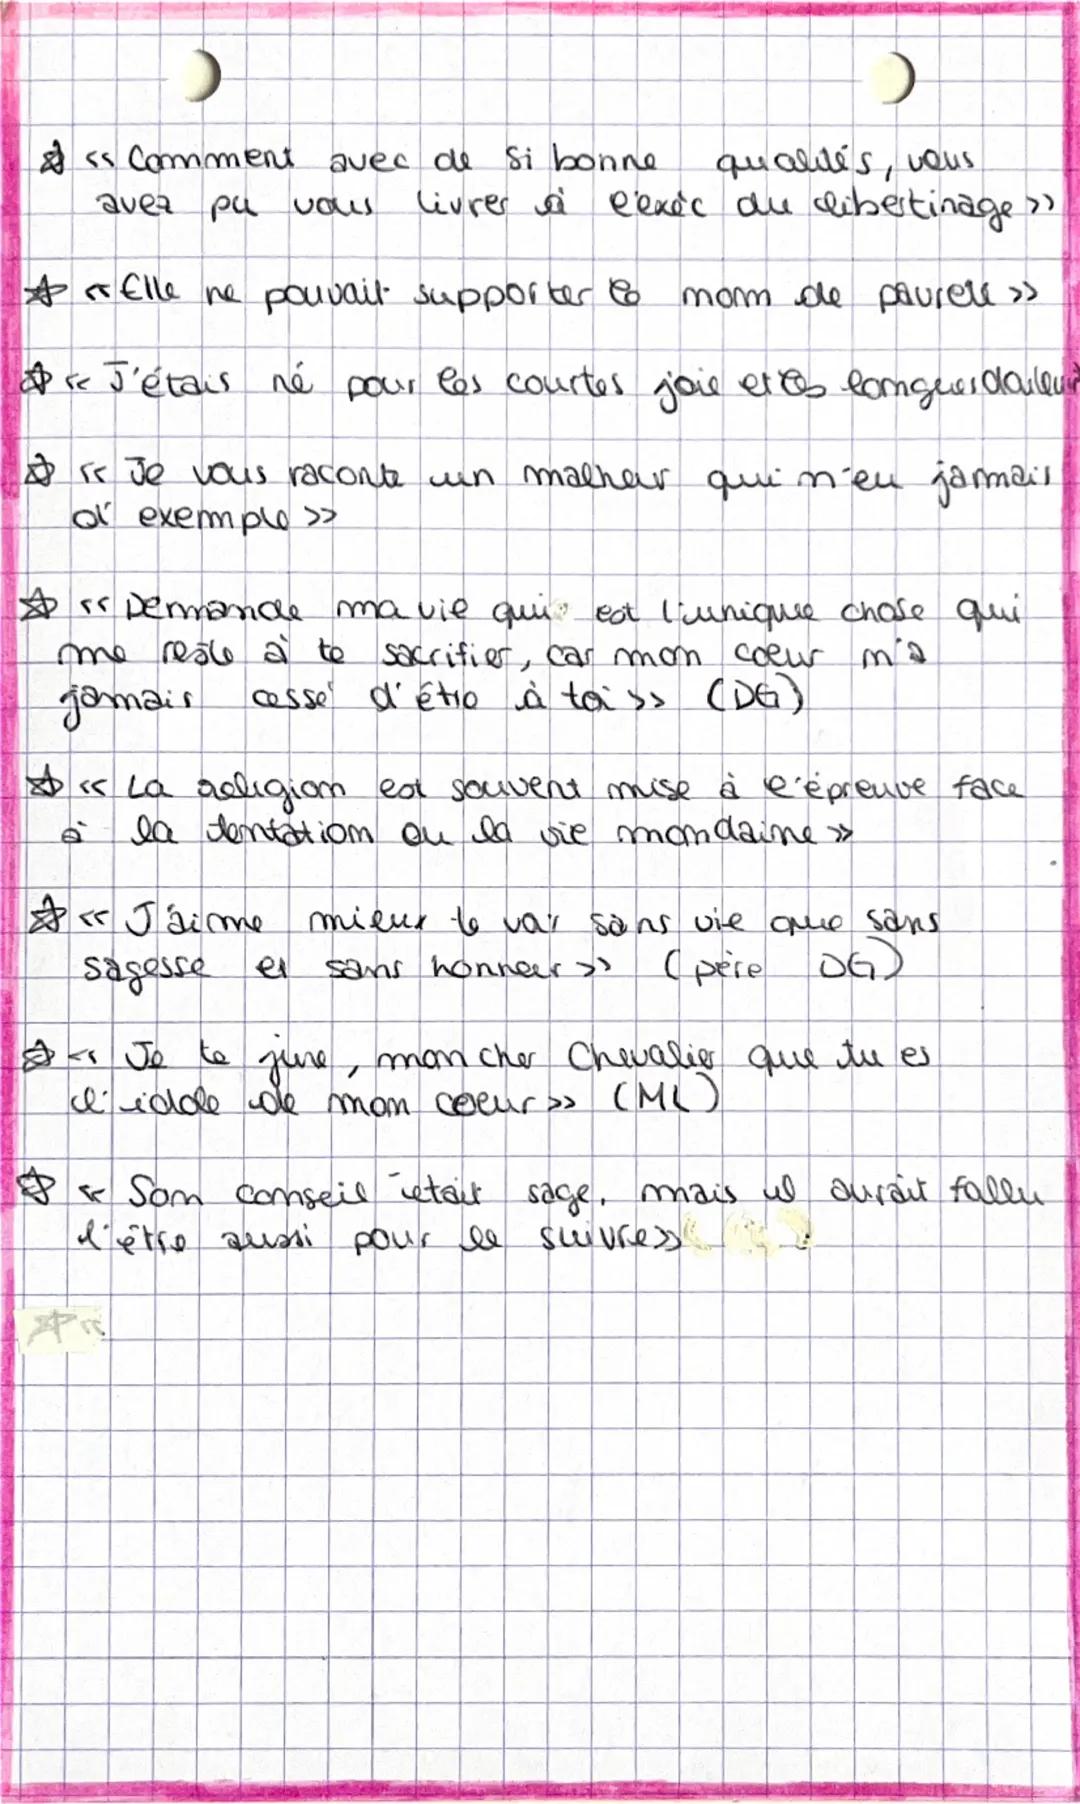 ☆ << Comment avec de si bonne qualités, vous
avez pu vous livrer à l'exéc du libertinage >>
☆ << Elle ne pouvait supporter le nom de pauvreté >>
☆ << J'étais né pour les courtes joie et les longues douleurs
☆ << Je vous raconte un malheur qui n'eu jamais
d'exemple >>
☆ << Demande ma vie qui est l'unique chose qui
me reste à te sacrifier, car mon coeur n'a
jamais cessé d'être à toi >> (DG)
☆ << La religion est souvent mise à l'épreuve face
à la tentation ou la vie mondaine >>
☆ << J'aime mieux te voir sans vie que sans
sagesse et sans honneur >> (père DG)
☆ << Je te jure, mon cher Chevalier que tu es
l'idole de mon coeur >> (ML)
☆ << Son conseil était sage, mais il aurait fallu
l'être aussi pour le suivre >>
☆ <<